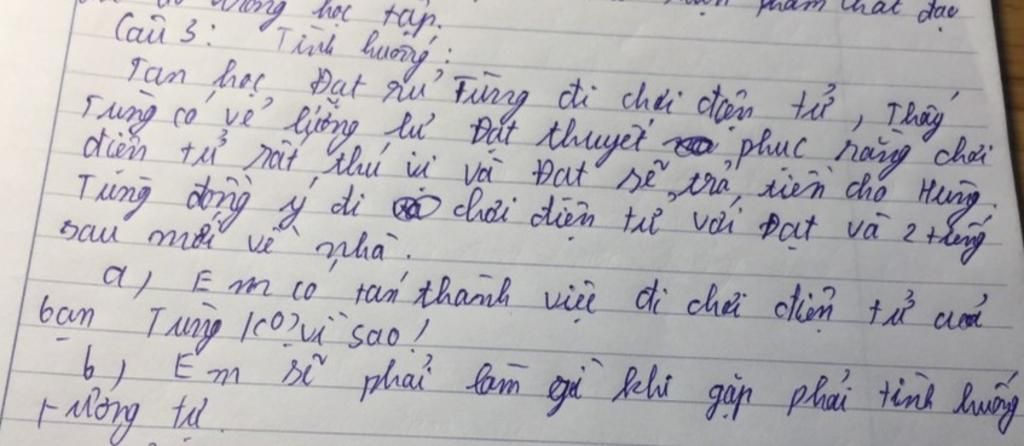 trong học tập. phẩm chất đạo
Câu 3: Tình huống:
Tan học, Đạt rủ Tùng đi chơi điện tử, Thấy
Tùng có vẻ lưỡng lự Đạt thuyết phục rằng chơi
điện tử rất thú vị và Đạt sẽ trả tiền cho Hưng.
Tùng đồng ý đi chơi điện tử với Đạt và 2 tiếng
sau mới về nhà.
a, Em có tán thành việc đi chơi điện tử của
bạn Tùng k(0)? vì sao!
b, Em sẽ phải làm gì khi gặp phải tình huống
tương tự.